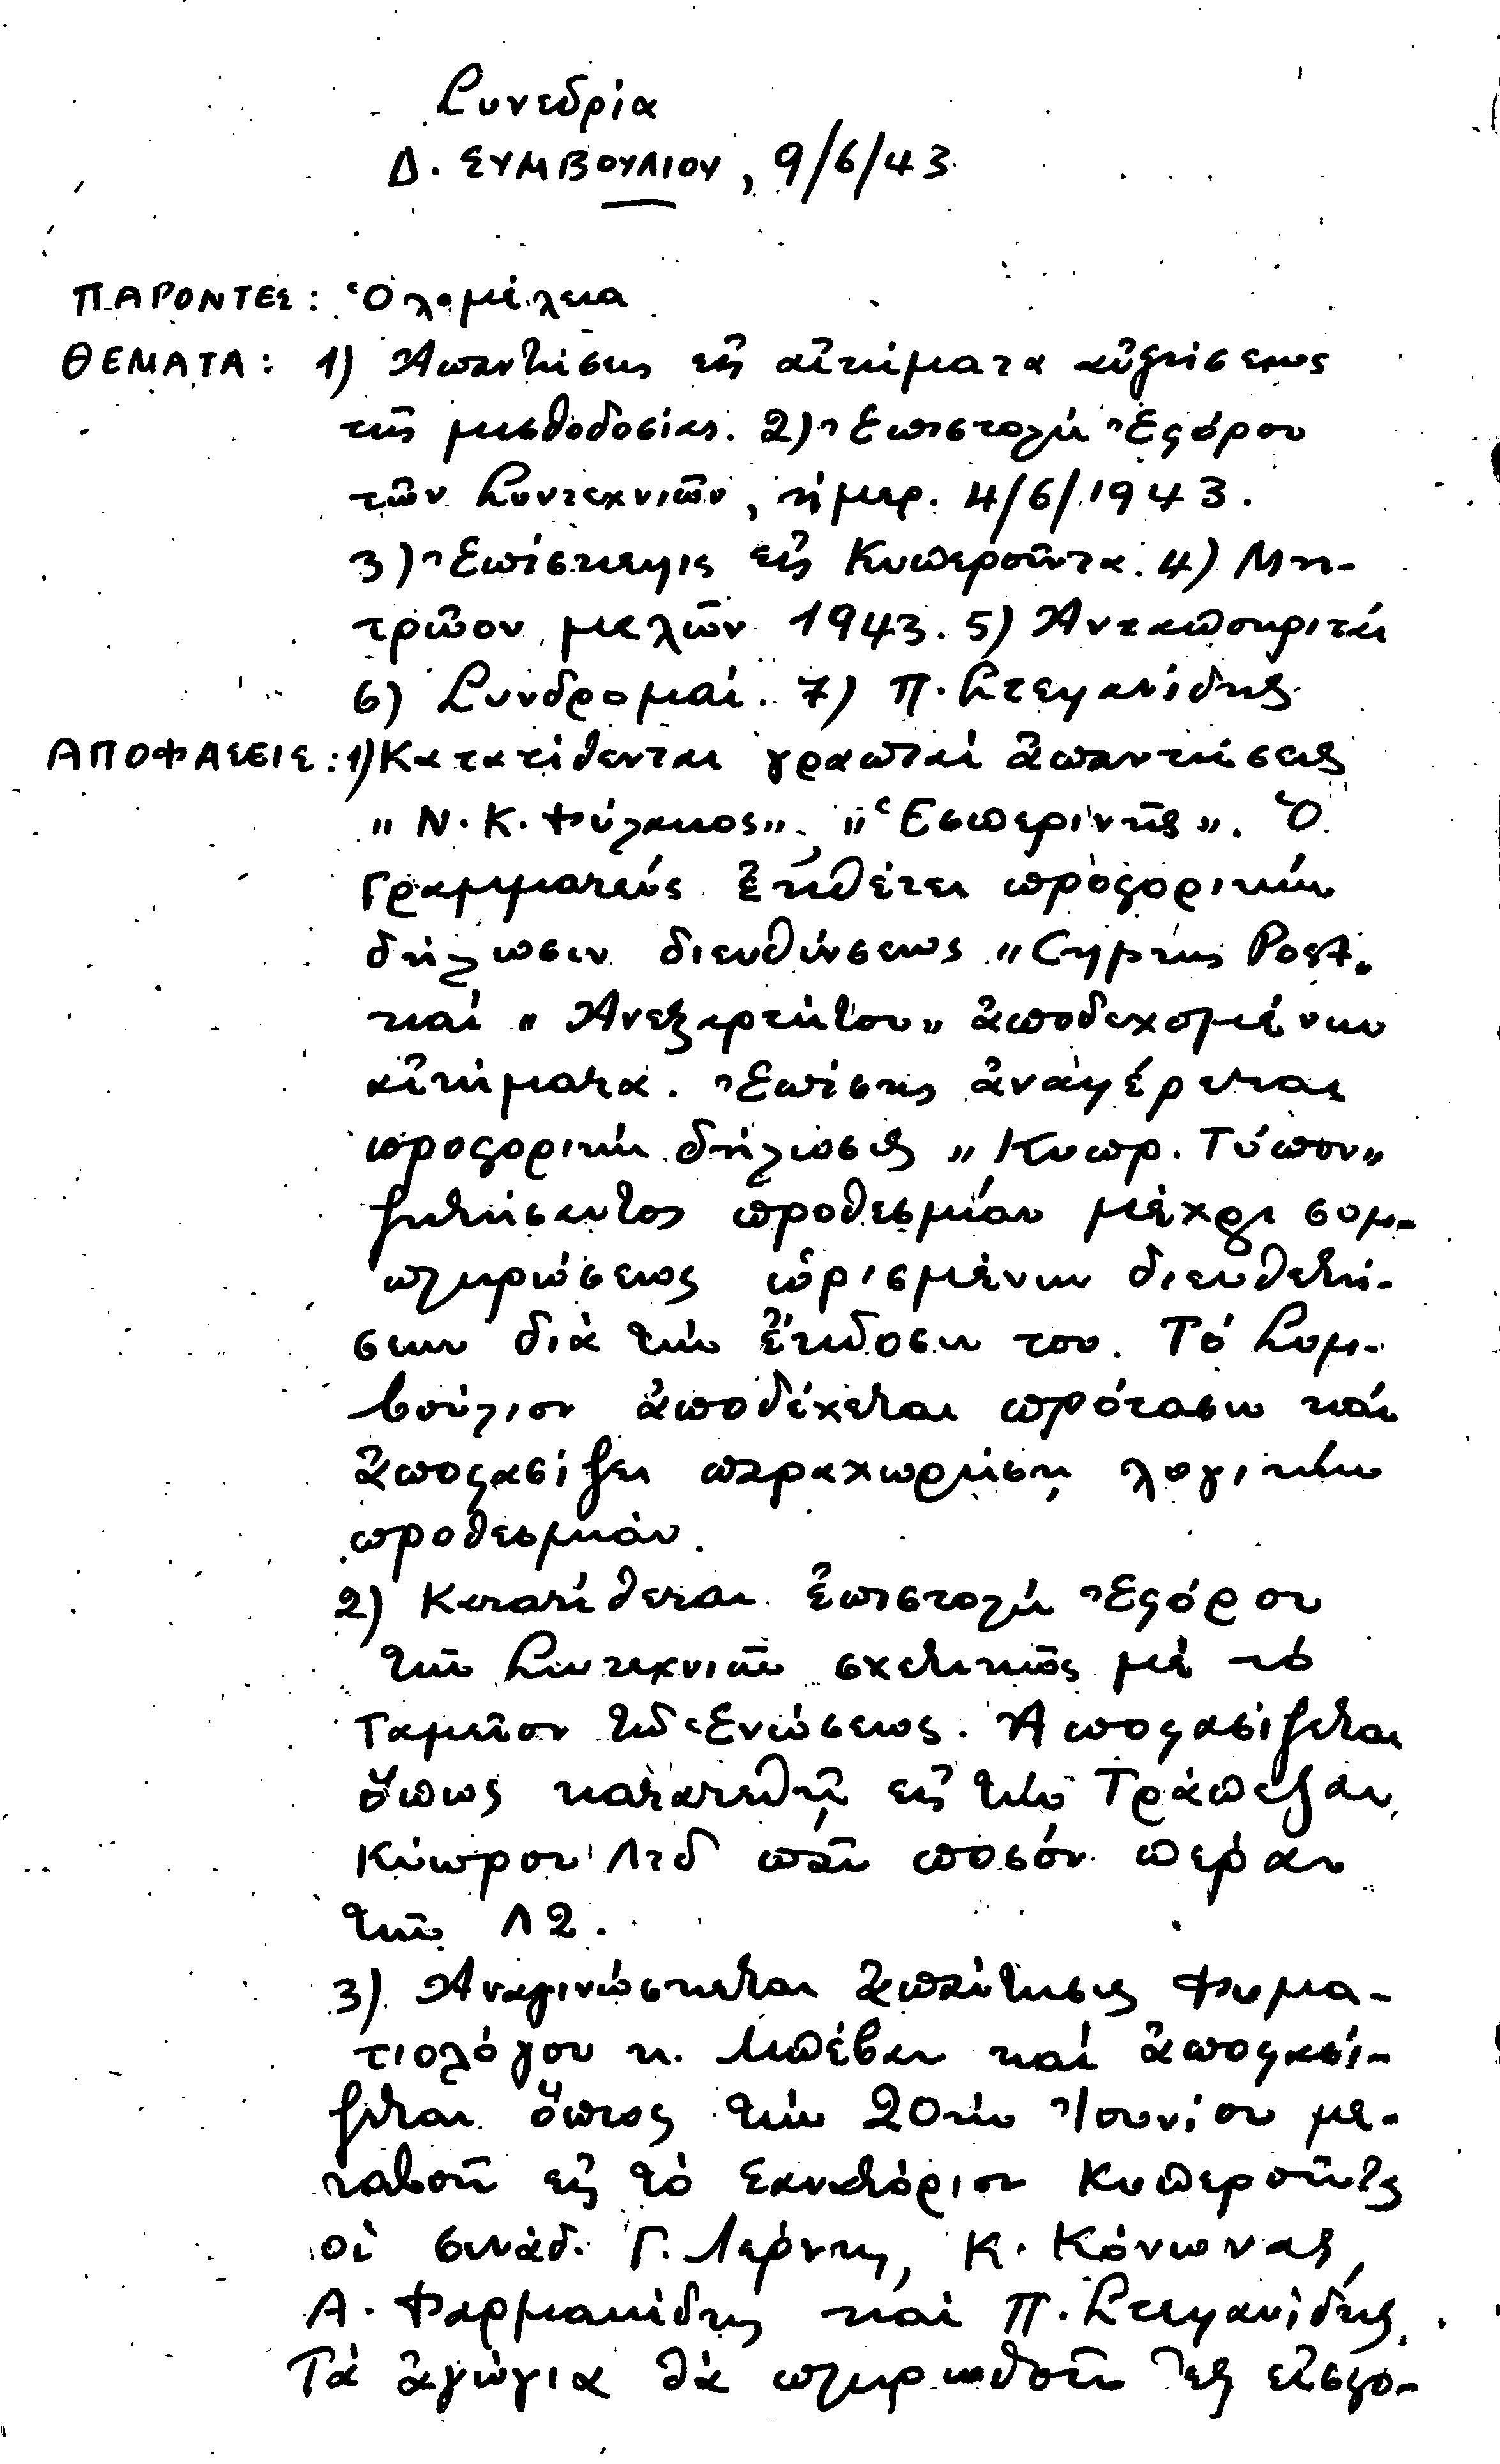 Συνεδρία
Δ. ΣΥΜΒΟΥΛΙΟΥ, 9/6/43
ΠΑΡΟΝΤΕΣ: Ὁλομέλεια
ΘΕΜΑΤΑ: 1) Ἀπαντήσεις εἰς αἰτήματα αὐξήσεως
τῆς μισθοδοσίας. 2) Ἐπιστολή Ἐφόρου
τῶν Συντεχνιῶν, ἡμερ. 4/6/1943.
3) Ἐπίσκεψις εἰς Κυπεροῦντα. 4) Μη-
τρῶον μελῶν 1943. 5) Ἀνταποκριταί
6) Συνδρομαί. 7) Π. Στεφανίδης
ΑΠΟΦΑΣΕΙΣ: 1) Κατατίθενται γραπταί ἀπαντήσεις
"Ν.Κ. Φύλακος", "Ἑσπερινῆς". Ὁ
Γραμματεύς ἐκθέτει προφορικήν
δήλωσιν διευθύνσεως "Cyprus Post.
καί "Ἀνεξαρτήτου" ἀποδεχομένην
αἰτήματα. Ἐπίσης ἀναφέρεται
προφορική δήλωσις "Κυπρ. Τύπου"
ζητήσαντος προθεσμίαν μέχρι συμ-
πληρώσεως ὡρισμένων διευθετή-
σεων διά τήν ἔκδοσιν του. Τό Συμ-
βούλιον ἀποδέχεται πρότασιν καί
ἀποφασίζει παραχώρησιν λογικήν
προθεσμίαν.
2) Κατατίθεται ἐπιστολή Ἐφόρου
τῶν Συντεχνιῶν σχετικῶς μέ τό
Ταμεῖον τῆς Ἑνώσεως. Ἀποφασίζεται
ὅπως κατατεθῇ εἰς τήν Τράπεζαν
Κύπρου Λτδ πᾶν ποσόν πέραν
τῶν Λ2.
3) Ἀναγινώσκεται ἀπάντησις Φυμα-
τιολόγου κ. Μπέβαν καί ἀποφασί-
ζεται ὅπως τήν 20ήν Ἰουνίου με-
ταβοῦν εἰς τό Σανατόριον Κυπερούντας
οἱ συνάδ. Γ. Λεύκης, Κ. Κόνωνας,
Α. Φαρμακίδης καί Π. Στεφανίδης.
Τά ἀγώγια θά πληρωθοῦν ἐξ εἰσφο-